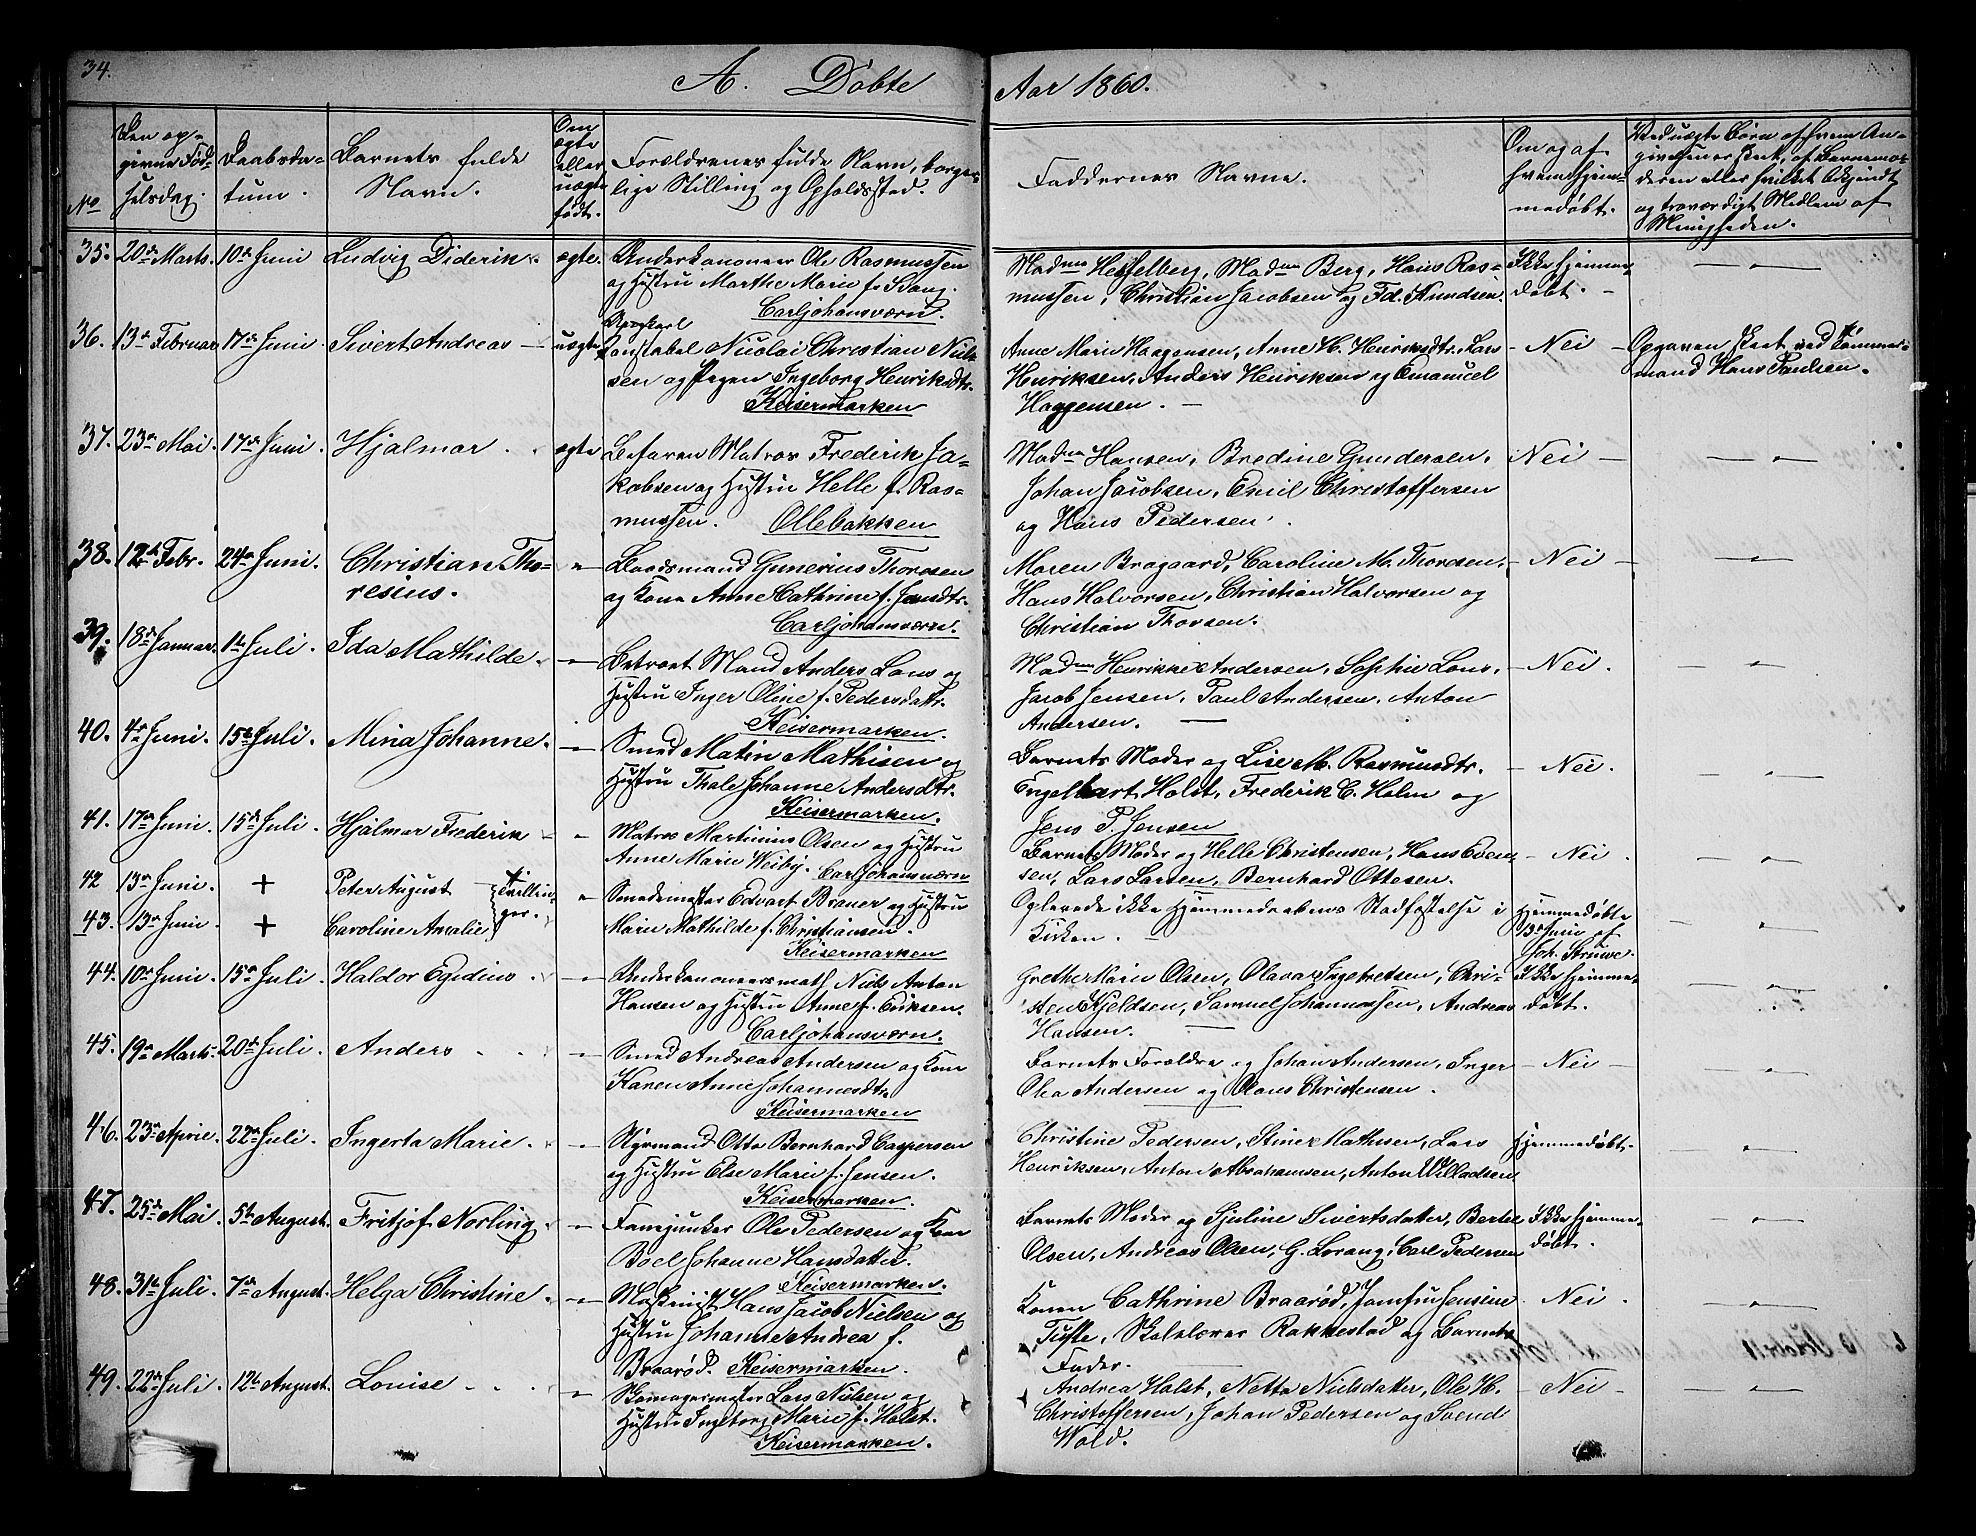 34.
A. Døbte
Aar 1860.
No
Den op-
givne Fød-
selsdag.
Daabsda-
tum.
Barnets fulde
Navn.
Om
ægte
eller
uægte
født.
Forældrenes fulde Navn, borger-
lige Stilling og Opholdssted.
Faddernes Navne.
Om og af
hvem hjem-
medøbt.
Ved uægte Børn af hvem An-
givelsen er skeet, af Barnemo-
deren eller hvilket bekjendt
og troværdigt Medlem af
Menigheden.
35. 20de Marts. 10de Juni Ludvig Diderik. ægte. Underkanoneer Ole Rasmussen
og Hustru Marthe Marie f. Stang.
Carljohansværn.
Madme Hesselberg, Madme Berg, Hans Ras-
mussen, Christian Jacobsen og Fd. Knudsen.
Ikke hjemme-
døbt.
36. 13de Februar 17de Juni. Sivert Andreas uægte Ungkarl
Konstabel Nicolai Christian Niel-
sen og Pigen Ingeborg Henriksdtr.
Keisermarken
Anne Marie Haagensen, Anne H. Henriksdtr. Lars
Henriksen, Anders Henriksen og Emanuel
Haagensen.
Nei
Opgaven skeet ved Tømmer-
mand Hans Paulsen.
37. 23de Mai. 17de Juni. Hjalmar. ægte Befaren Matros Frederik Ja-
kobsen og Hustru Helle f. Ras-
mussen. Ollebakken
Madme Hansen, Bredine Gundersen,
Johan Jacobsen, Emil Christoffersen
og Hans Pedersen.
Nei
38. 12te Febr. 24de Juni. Christian Tho-
resius.
Baadsmand Gunerius Thoresen
og Kone Anne Cathrine f. Jensdtr.
Carljohansværn.
Maren Bragaard, Caroline M. Thoresen,
Hans Halvorsen, Christian Halvorsen og
Christian Thorsen.
Nei
39. 18de Januar. 1ste Juli. Ida Mathilde.
Betroet Mand Anders Lans og
Hustru Inger Oline f. Pedersdatr.
Keisermarken.
Madme Henrikke Andersen, Sophie Lans,
Jacob Jensen, Paul Andersen, Anton
Andersen.
Nei.
40. 4de Juni. 15de Juli. Mina Johanne.
Smed Matin Mathisen og
Hustru Thale Johanne Andersdtr.
Keisermarken.
Barnets Moder og Lise M. Rasmusdtr.
Engelbart Holst, Frederik C. Holm og
Jens P. Jensen
Nei.
41. 17de Juni. 15de Juli. Hjalmar Frederik
Matros Martinius Olsen og Hustru
Anne Marie Wiby. Carljohansværn
Barnets Moder og Helle Christensen, Hans Even-
sen, Lars Larsen, Bernhard Ottesen.
Nei.
42 13de Juni. + Peter August
Tvillin-
ger.
43. 13de Juni + Caroline Amalie
Smedemester Edvart Brauer og Hustru
Marie Mathilde f. Christiansen
Keisermarken
Oplevede ikke Hjemmedaabens Stadfæstelse i
Kirken.
Hjemmedøbte
13de Juni af
Joh. Struwe.
44. 10de Juni. 15de Juli. Haldor Egidius
Underkanoneersmath Niels Anton
Hansen og Hustru Anne f. Eriksen.
Carljohansværn.
Grethe Marie Olsen, Olava Ingebretsen, Chri-
sten Kjeldsen, Samuel Johannessen, Andreas
Hansen.
Ikke hjemme-
døbt.
45. 19de Marts. 20de Juli. Anders
Smed Andreas Andersen og Kone
Karen Anne Johannesdtr.
Keisermarken
Barnets Forældre og Johan Andersen, Inger
Olea Andersen og Claus Christensen.
Nei
46. 23de April. 22de Juli. Ingerta Marie.
Styrmand Otto Bernhard Caspersen
og Hustru Else Marie f. Jensen.
Keisermarken.
Christine Pedersen, Stine Mathisen, Lars
Henriksen, Anton Abrahamsen, Anton Willadsen
Hjemmedøbt.
47. 25de Mai. 5te August. Fritjof Norling
Fanejunker Ole Pedersen og Kone
Boel Johanne Hansdatter.
Keisermarken.
Barnets Moder og Sjuline Sivertsdatter, Bertel
Olsen, Andreas Olsen, G. Lorang, Carl Pedersen
Ikke hjemme-
døbt.
48. 31te Juli. 7de August. Helga Christine.
Maskinist Hans Jacob Nielsen og
Hustru Johanne Andrea f.
Braarød. Keisermarken.
Konen Cathrine Braarød, Jomfru Jensine
Tufte, Skolelærer Rakkestad og Barnets
Fader.
Nei.
49. 22de Juli. 12te August. Louise
Skomagermester Lars Nielsen og
Hustru Ingeborg Marie f. Holst.
Keisermarken.
Andrea Holst, Netta Nielsdatter, Ole H.
Christoffersen, Johan Pedersen og Svend
Wold.
Nei